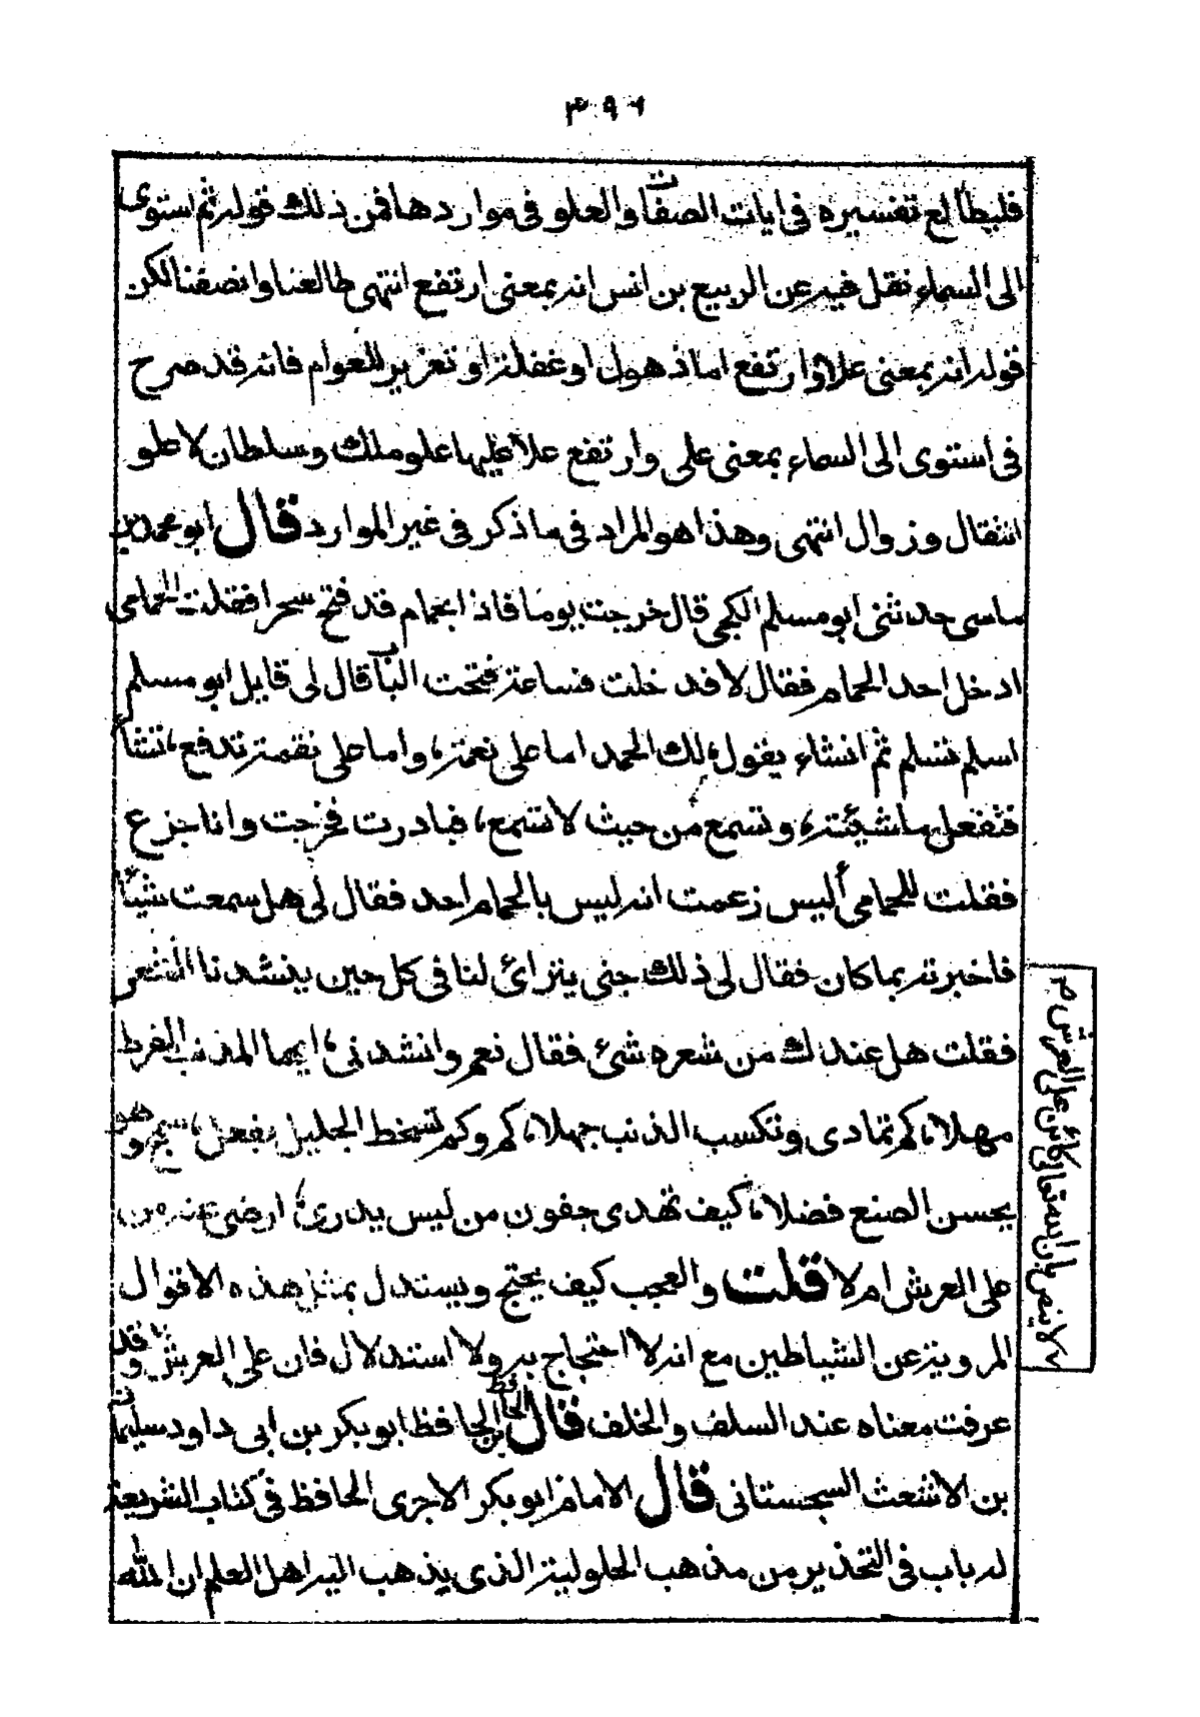 ٣٩٦
فليطالع تفسيره في ايات الصفات والعلو في مواردها فمن ذلك قوله ثم استوى
الى السماء نقل فيه عن الربيع بن انس انه بمعنى ارتفع انتهى طالعنا وانصفنا لكن
قوله انه بمعنى علا وارتفع اما ذهول او غفلة او تغرير للعوام فانه قد صرح
في استوى الى السماء بمعنى على وارتفع علا عليها علو ملك وسلطان لا علو
انتقال وزوال انتهى وهذا هو المراد في ما ذكر في غير الموارد قال ابو محمد بن
ماسى حدثنى ابو مسلم الكجى قال خرجت يوما فاذا بحمام قد فتح سحرا فقلت للحمامي
ادخل احد الحمام فقال لا فدخلت فساعة فتحت الباب قال لى قايل ابو مسلم
اسلم تسلم ثم انشاء يقول، لك الحمد اما على نعمة، واما على نقمة تدفع، تشاء
فتفعل ما شئته، وتسمع من حيث لا تسمع، فبادرت فخرجت وانا جزع
فقلت للحمامي أليس زعمت انه ليس بالحمام احد فقال لى هل سمعت شيئا
فاخبرته بما كان فقال لى ذلك جنى يترائ لنا في كل حين ينشدنا الشعر
فقلت هل عندك من شعره شئ فقال نعم وانشدنى، ايها المذنب المفرط
مهلا، كم تمادى وتكسب الذنب جهلا، كم وكم تسخط الجليل بفعل، سمج وهو
يحسن الصنع فضلا، كيف تهدى جفون من ليس يدرى، ارضى عنه من
على العرش ام لا قلت والعجب كيف يحتج ويستدل بمثل هذه الاقوال
المروية عن الشياطين مع انه لا احتجاج به ولا استدلال فان على العرش وقد
عرفت معناه عند السلف والخلف قال الحافظ ابو بكر بن ابى داود سليمان
بن الاشعث السجستانى قال الامام ابو بكر الاجرى الحافظ في كتاب الشريعة
له باب في التحذير من مذهب الحلولية الذى يذهب اليه اهل العلم ان الله
لا ينص بان الله تعالى كائن على العرش م